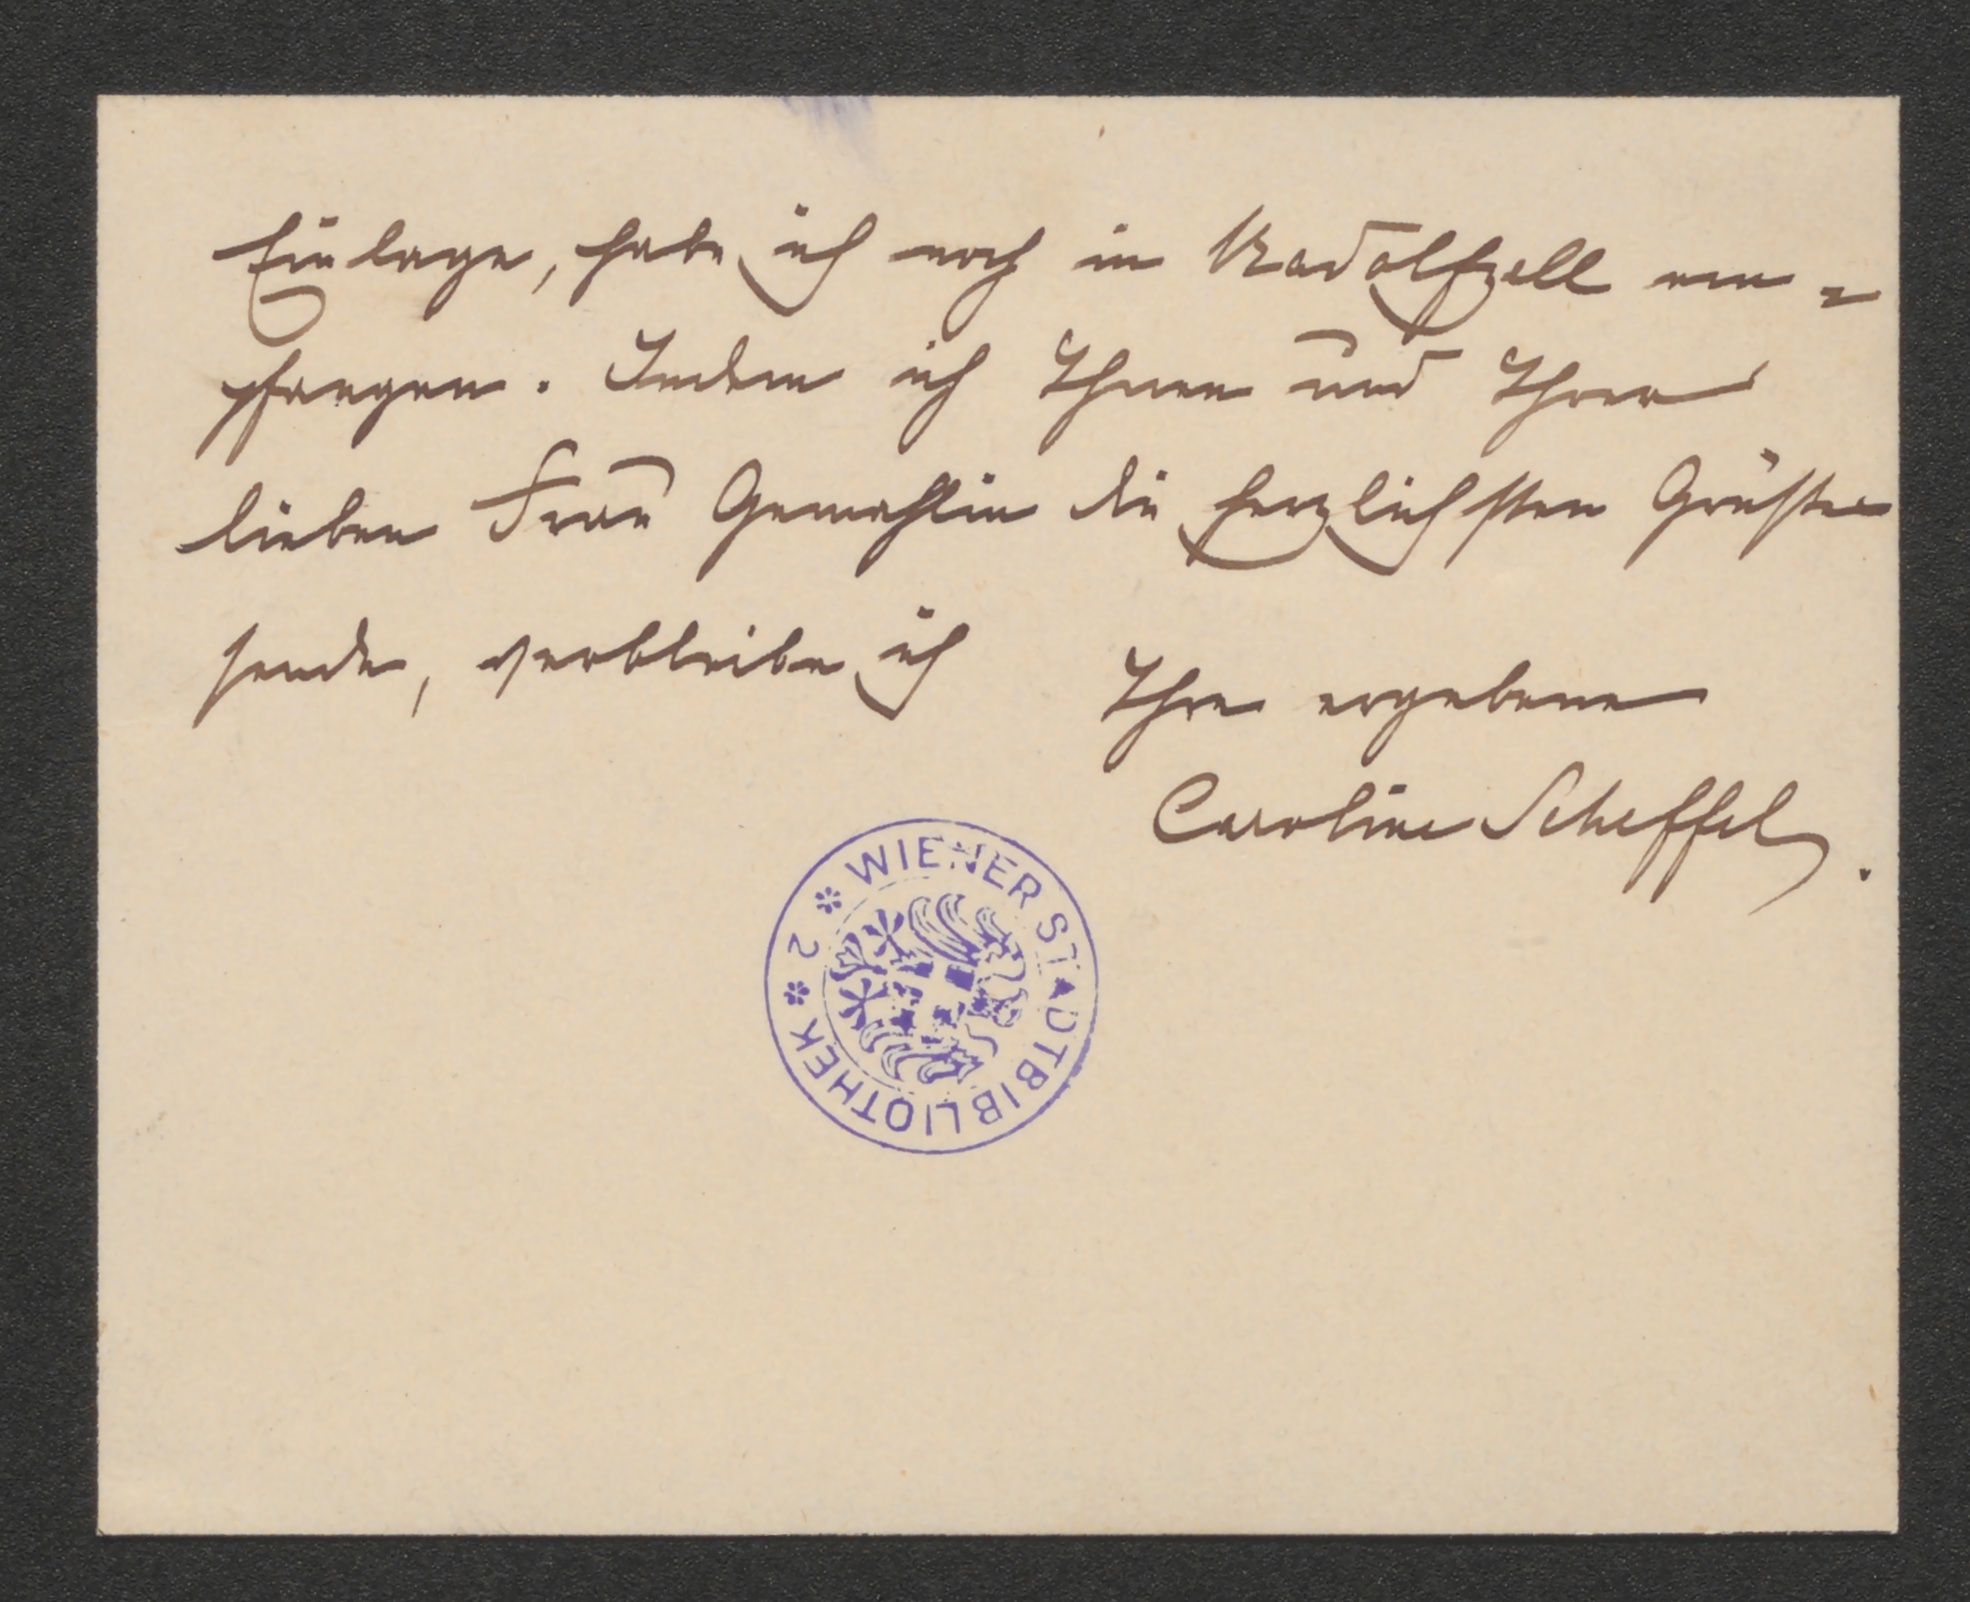 Einlage, habe ich noch in Radolfzell em=
pfangen. Indem ich Ihnen und Ihrer
lieben Frau Gemahlin die herzlichsten Grüße
sende, verbleibe ich
Ihre ergebene
Caroline Scheffel.
* WIENER STADTBIBLIOTHEK * 2